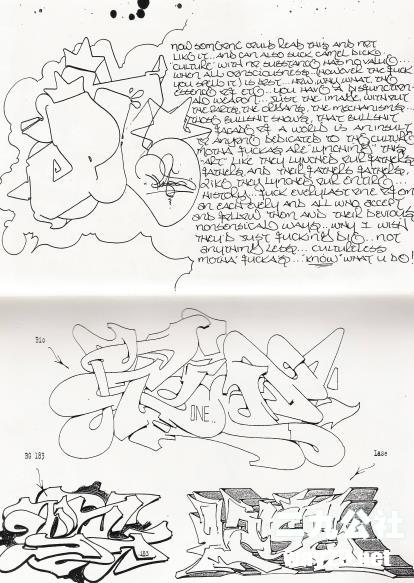 NOW SOMEONE COULD READ THIS AND NOT
LIKE IT... AND CAN ALSO SUCK CAMEL DICKS...
"CULTURE" WITH NO SUBSTANCE HAS NO VALUE...
WHEN ALL CONSCIOUSNESS (HOWEVER THE FUCK
YOU SPELL IT) IS LOST... HOW, WHY, WHAT, THE
ESSENCE OF ETC... YOU HAVE A DISFUNCTION-
AL WEAPON... JUST THE IMAGE, WITHOUT
THE PARTS, THE ORGANS, THE MECHANISMS...
THOSE BULLSHIT SHOWS, THAT BULLSHIT
FACADE OF A WORLD IS AN INSULT
TO ANYONE DEDICATED TO THE CULTURE
MOTHA FUCKAS ARE LYNCHING THIS
"ART" LIKE THEY LYNCHED OUR FATHERS
FATHERS, AND THEIR FATHERS FATHERS,
LIKE THEY LYNCHED OUR ENTIRE...
HISTORY. FUCK EVERYLAST ONE OF EM
AN EACH, EVERY AND ALL WHO ACCEPT
AND FOLLOW THEM AND THEIR DEVIOUS
NONSENSICAL WAYS... WHY I WISH
THEY'D JUST FUCKING DIE... NOT
ANYTHING LESS... CULTURELESS
MOTHA FUCKAS... "KNOW" WHAT U DO!
Bio
ONE..
BG 183
Lase
183